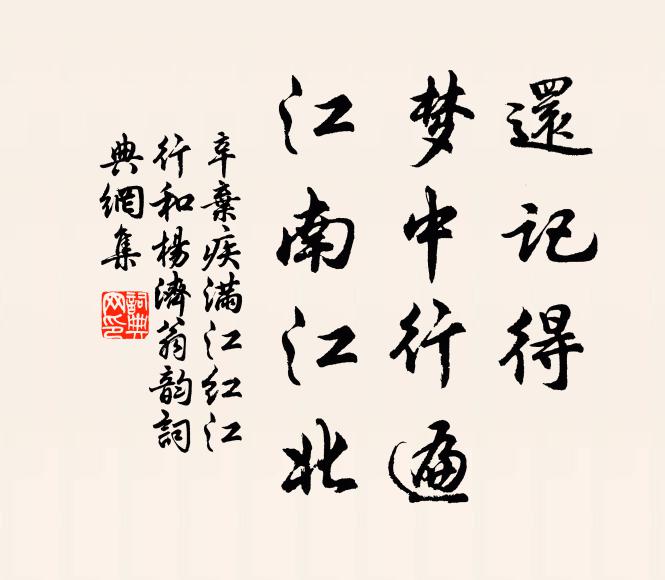 還記得
梦中行遍
江南江北
辛棄疾满江红江
行和楊濟翁韵詞
典網集
詞典网印